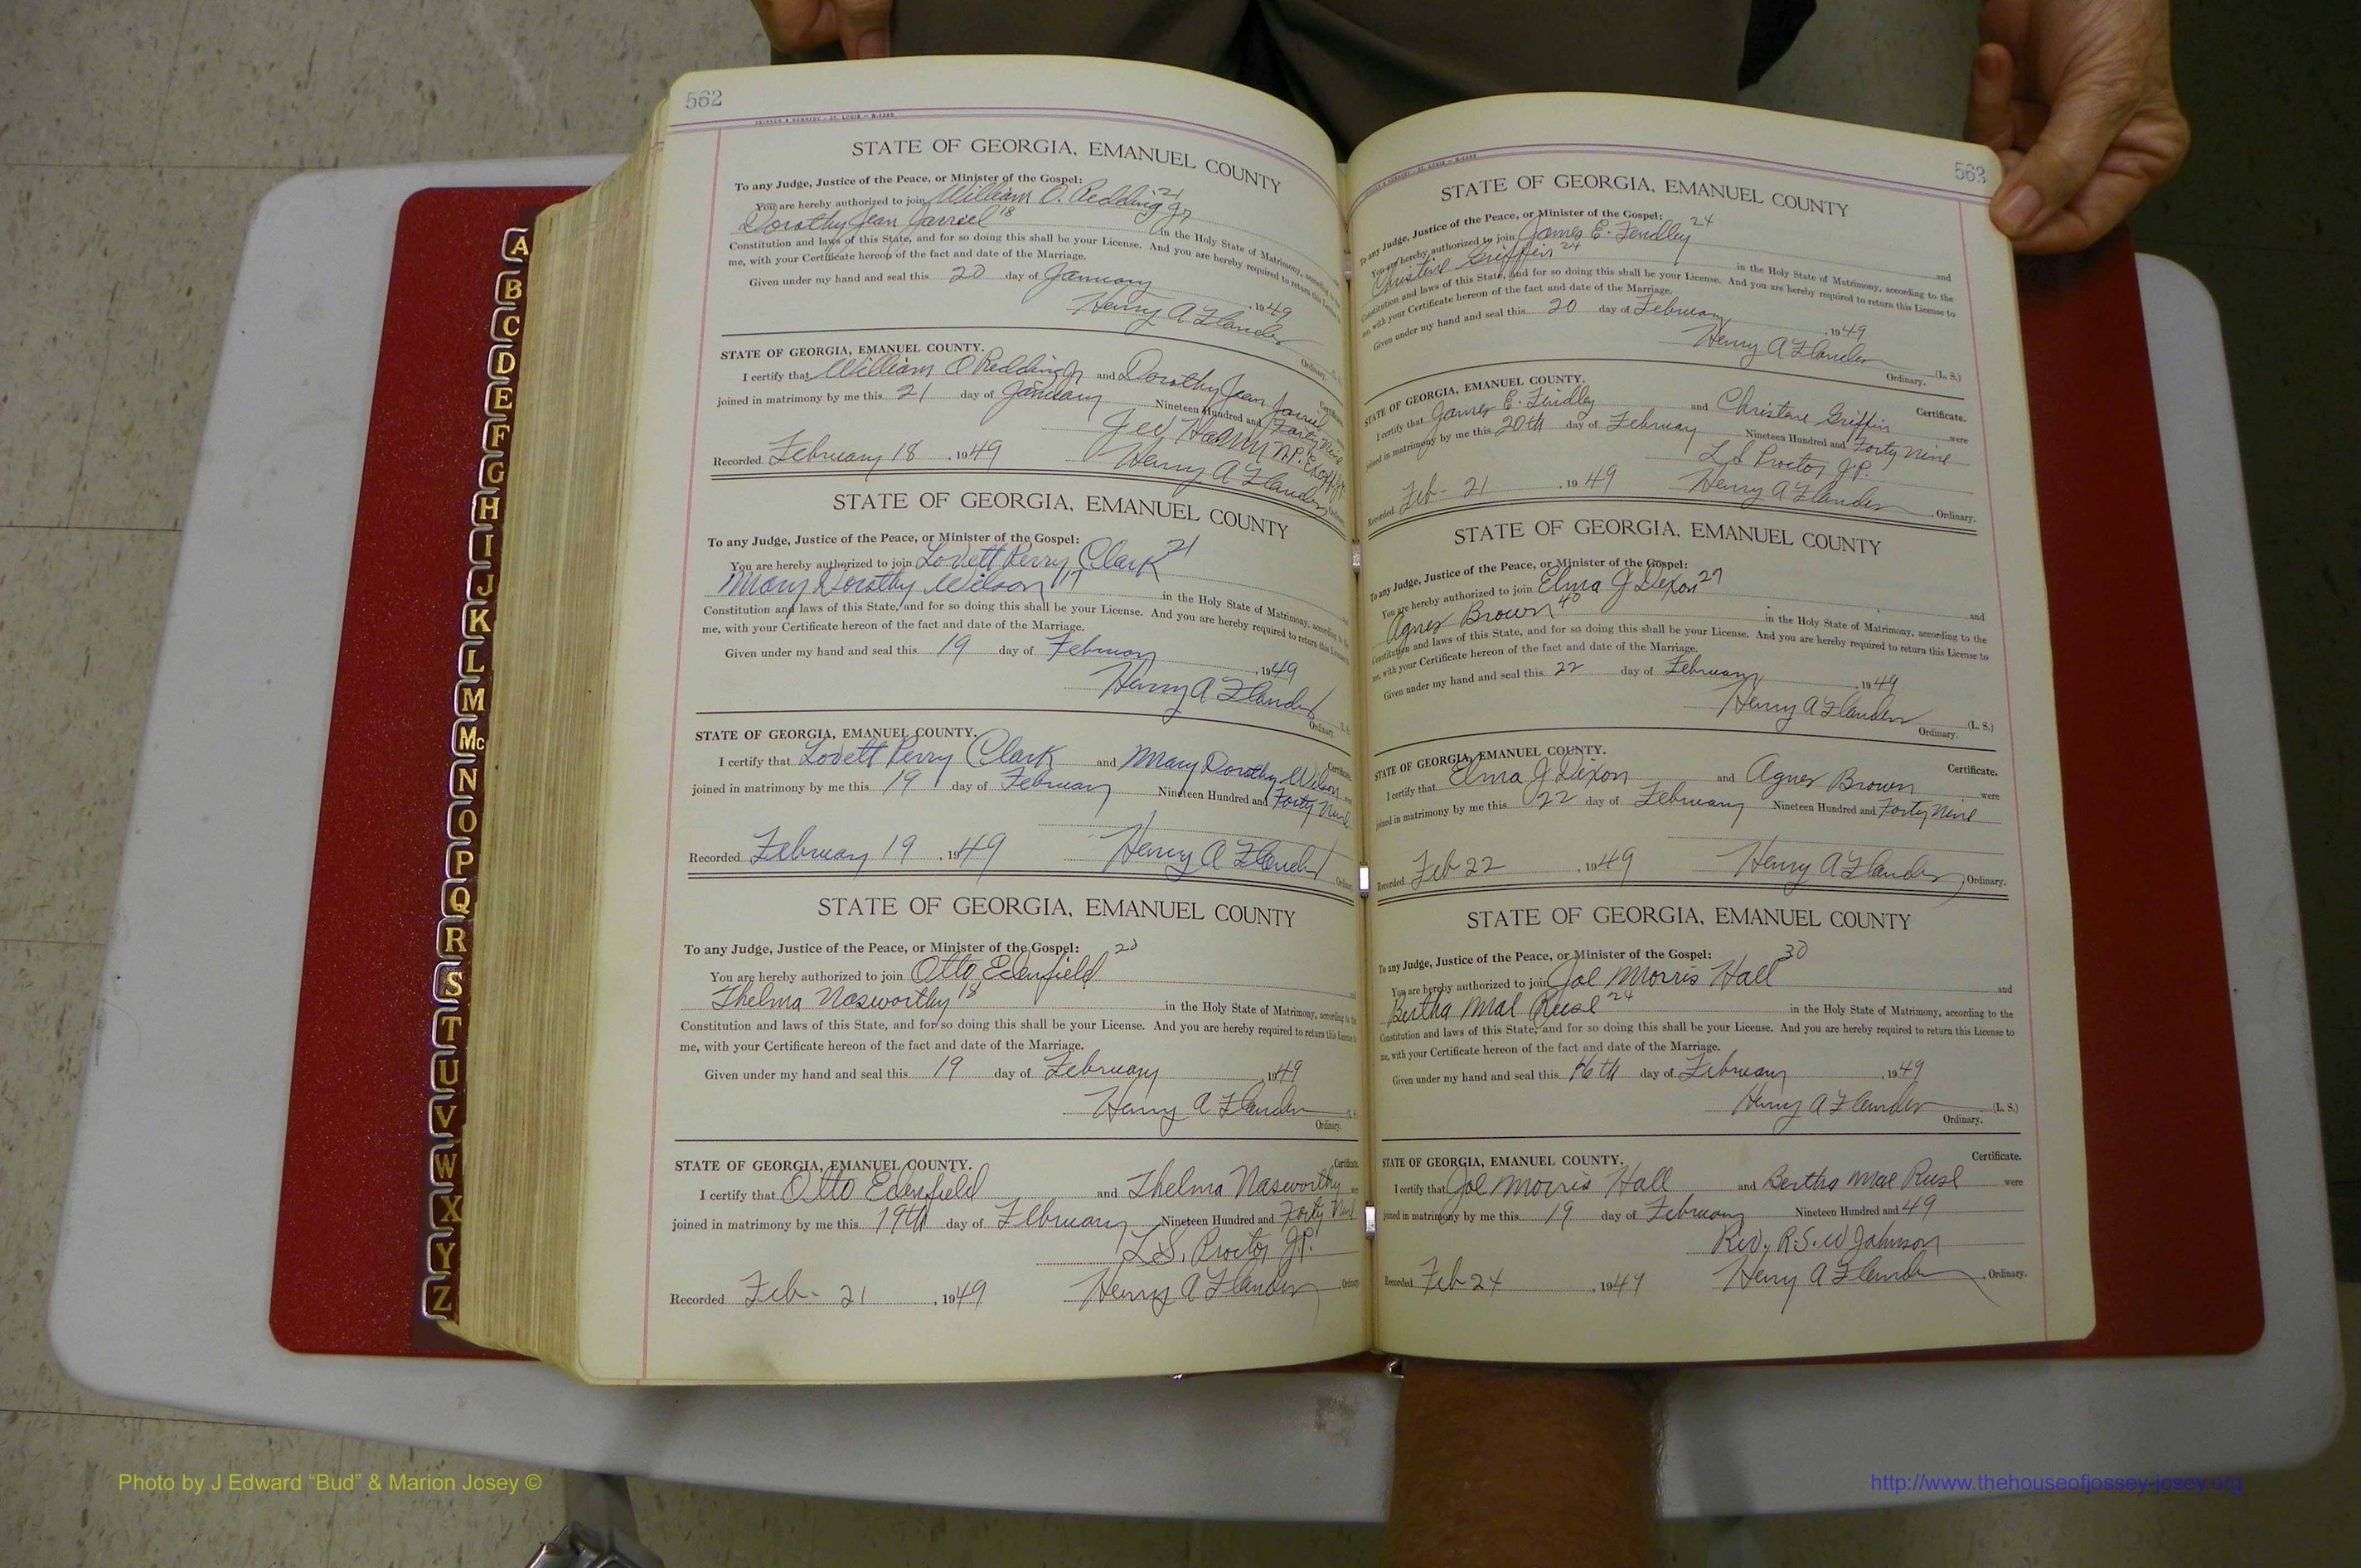 562
SKINNER & KENNEDY - ST. LOUIS
STATE OF GEORGIA, EMANUEL COUNTY
To any Judge, Justice of the Peace, or Minister of the Gospel:
You are hereby authorized to join William O. Redding Jr 21
Dorothy Jean 18 in the Holy State of Matrimony, according to the
Constitution and laws of this State, and for so doing this shall be your License. And you are hereby required to return this License
me, with your Certificate hereon of the fact and date of the Marriage.
Given under my hand and seal this 20 day of January, 1949
Henry A Flanders
Ordinary.
STATE OF GEORGIA, EMANUEL COUNTY.
Certificate
I certify that William O Redding Jr and Dorothy Jean
joined in matrimony by me this 21 day of January Nineteen Hundred and Forty Nine
N.P.
Recorded February 18, 1949 Henry A Flanders
STATE OF GEORGIA, EMANUEL COUNTY
To any Judge, Justice of the Peace, or Minister of the Gospel:
You are hereby authorized to join Lovett Perry Clark 21
Mary Dorothy Wilson 17 in the Holy State of Matrimony, according to the
Constitution and laws of this State, and for so doing this shall be your License. And you are hereby required to return this License
me, with your Certificate hereon of the fact and date of the Marriage.
Given under my hand and seal this 19 day of February, 1949
Henry A Flanders
Ordinary.
STATE OF GEORGIA, EMANUEL COUNTY.
Certificate.
I certify that Lovett Perry Clark and Mary Dorothy Wilson
joined in matrimony by me this 19 day of February Nineteen Hundred and Forty Nine
Recorded February 19, 1949 Henry A Flanders
STATE OF GEORGIA, EMANUEL COUNTY
To any Judge, Justice of the Peace, or Minister of the Gospel:
You are hereby authorized to join Otto Edenfield and
Thelma Nasworthy 18 in the Holy State of Matrimony, according to the
Constitution and laws of this State, and for so doing this shall be your License. And you are hereby required to return this License
me, with your Certificate hereon of the fact and date of the Marriage.
Given under my hand and seal this 19 day of February, 1949
Henry A Flanders
Ordinary.
STATE OF GEORGIA, EMANUEL COUNTY.
Certificate
I certify that Otto Edenfield and Thelma Nasworthy
joined in matrimony by me this 19th day of February Nineteen Hundred and Forty Nine
L.S. Proctor J.P.
Recorded Feb- 21, 1949 Henry A Flanders
563
STATE OF GEORGIA, EMANUEL COUNTY
To any Judge, Justice of the Peace, or Minister of the Gospel:
You are hereby authorized to join James E. Findley 24 and
Christine Griffin 24 in the Holy State of Matrimony, according to the
Constitution and laws of this State, and for so doing this shall be your License. And you are hereby required to return this License to
me, with your Certificate hereon of the fact and date of the Marriage.
Given under my hand and seal this 20 day of February, 1949
Henry A Flanders (L. S.)
Ordinary.
STATE OF GEORGIA, EMANUEL COUNTY.
Certificate.
I certify that James E. Findley and Christene Griffin were
joined in matrimony by me this 20th day of February Nineteen Hundred and Forty Nine
L S Proctor J.P.
Recorded Feb- 21, 1949 Henry A Flanders, Ordinary.
STATE OF GEORGIA, EMANUEL COUNTY
To any Judge, Justice of the Peace, or Minister of the Gospel:
You are hereby authorized to join Elma J Dixon and
Agnes Brown 40 in the Holy State of Matrimony, according to the
Constitution and laws of this State, and for so doing this shall be your License. And you are hereby required to return this License to
me, with your Certificate hereon of the fact and date of the Marriage.
Given under my hand and seal this 22 day of February, 1949
Henry A Flanders (L. S.)
Ordinary.
STATE OF GEORGIA, EMANUEL COUNTY.
Certificate.
I certify that Elma J Dixon and Agnes Brown were
joined in matrimony by me this 22 day of February Nineteen Hundred and Forty Nine
Recorded Feb 22, 1949 Henry A Flanders, Ordinary.
STATE OF GEORGIA, EMANUEL COUNTY
To any Judge, Justice of the Peace, or Minister of the Gospel:
You are hereby authorized to join Joe Morris Hall 30 and
Bertha Mae 24 in the Holy State of Matrimony, according to the
Constitution and laws of this State, and for so doing this shall be your License. And you are hereby required to return this License to
me, with your Certificate hereon of the fact and date of the Marriage.
Given under my hand and seal this 16th day of February, 1949
Henry A Flanders (L. S.)
Ordinary.
STATE OF GEORGIA, EMANUEL COUNTY.
Certificate.
I certify that Joe Morris Hall and Bertha Mae were
joined in matrimony by me this 19 day of February Nineteen Hundred and 49
Rev. R.S.W Johnson
Recorded Feb 24, 1949 Henry A Flanders, Ordinary.
A
B
C
D
E
F
G
H
I
J
K
L
M
Mc
N
O
P
Q
R
S
T
U
V
W
X
Y
Z
Photo by J Edward “Bud” & Marion Josey ©
http://www.thehouseofjossey-josey.org